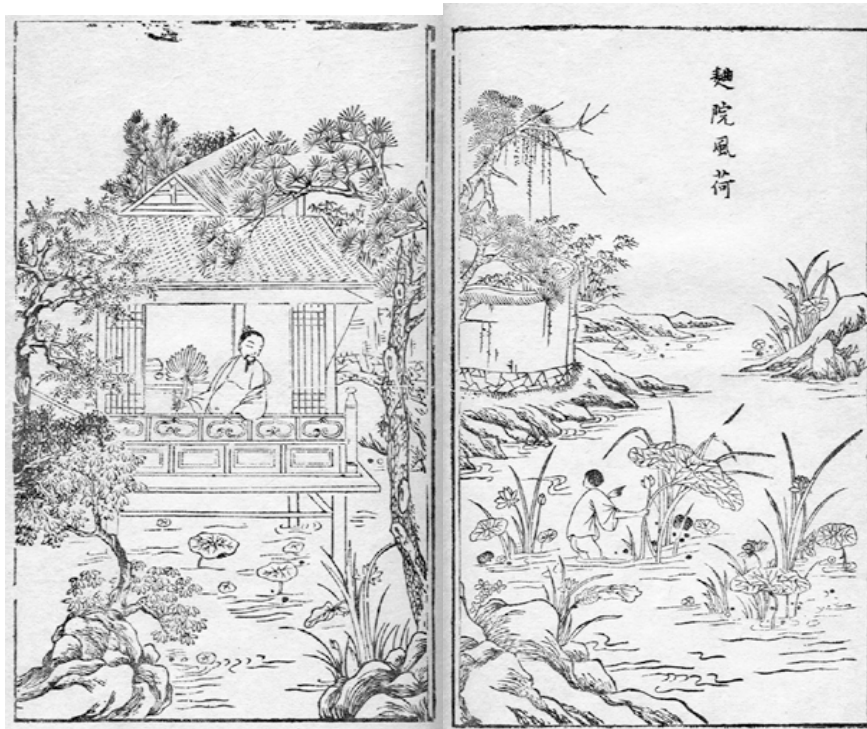 麯院風荷